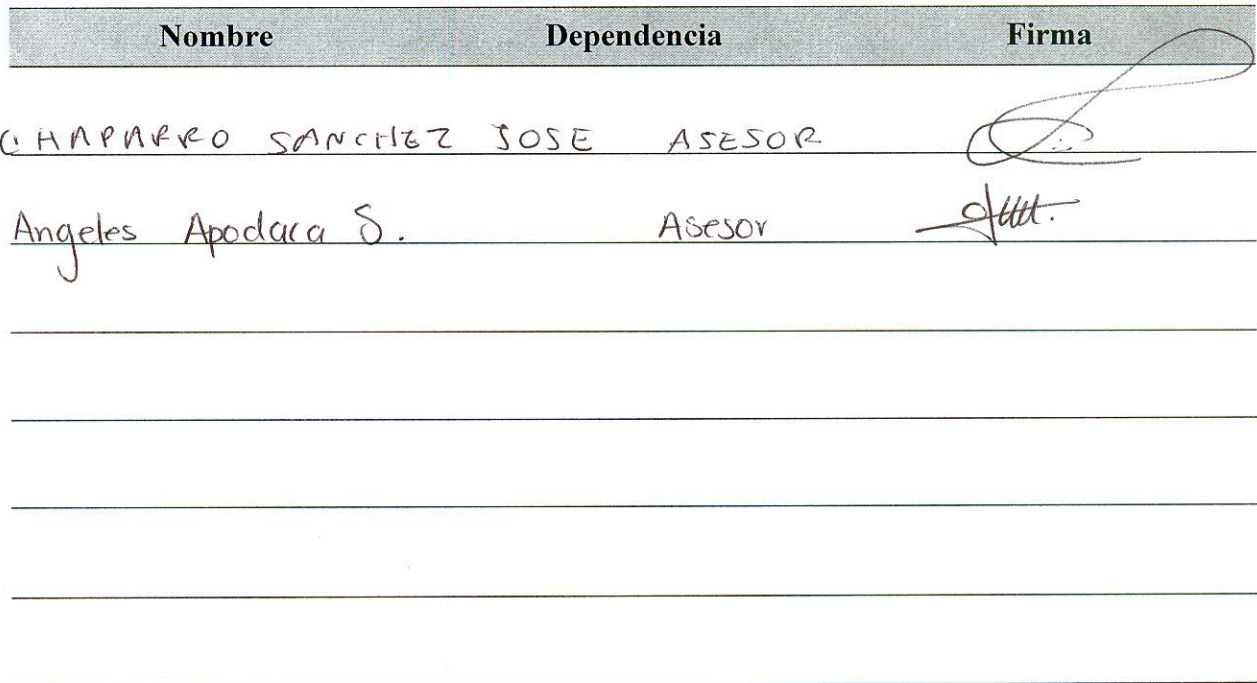 Nombre Dependencia Firma
CHAPARRO SANCHEZ JOSE ASESOR
Angeles Apodaca S. Asesor